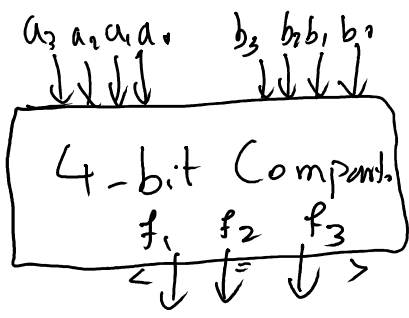 a3 a2 a1 a0 b3 b2 b1 b0
4-bit Compar.
f1 f2 f3
< = >